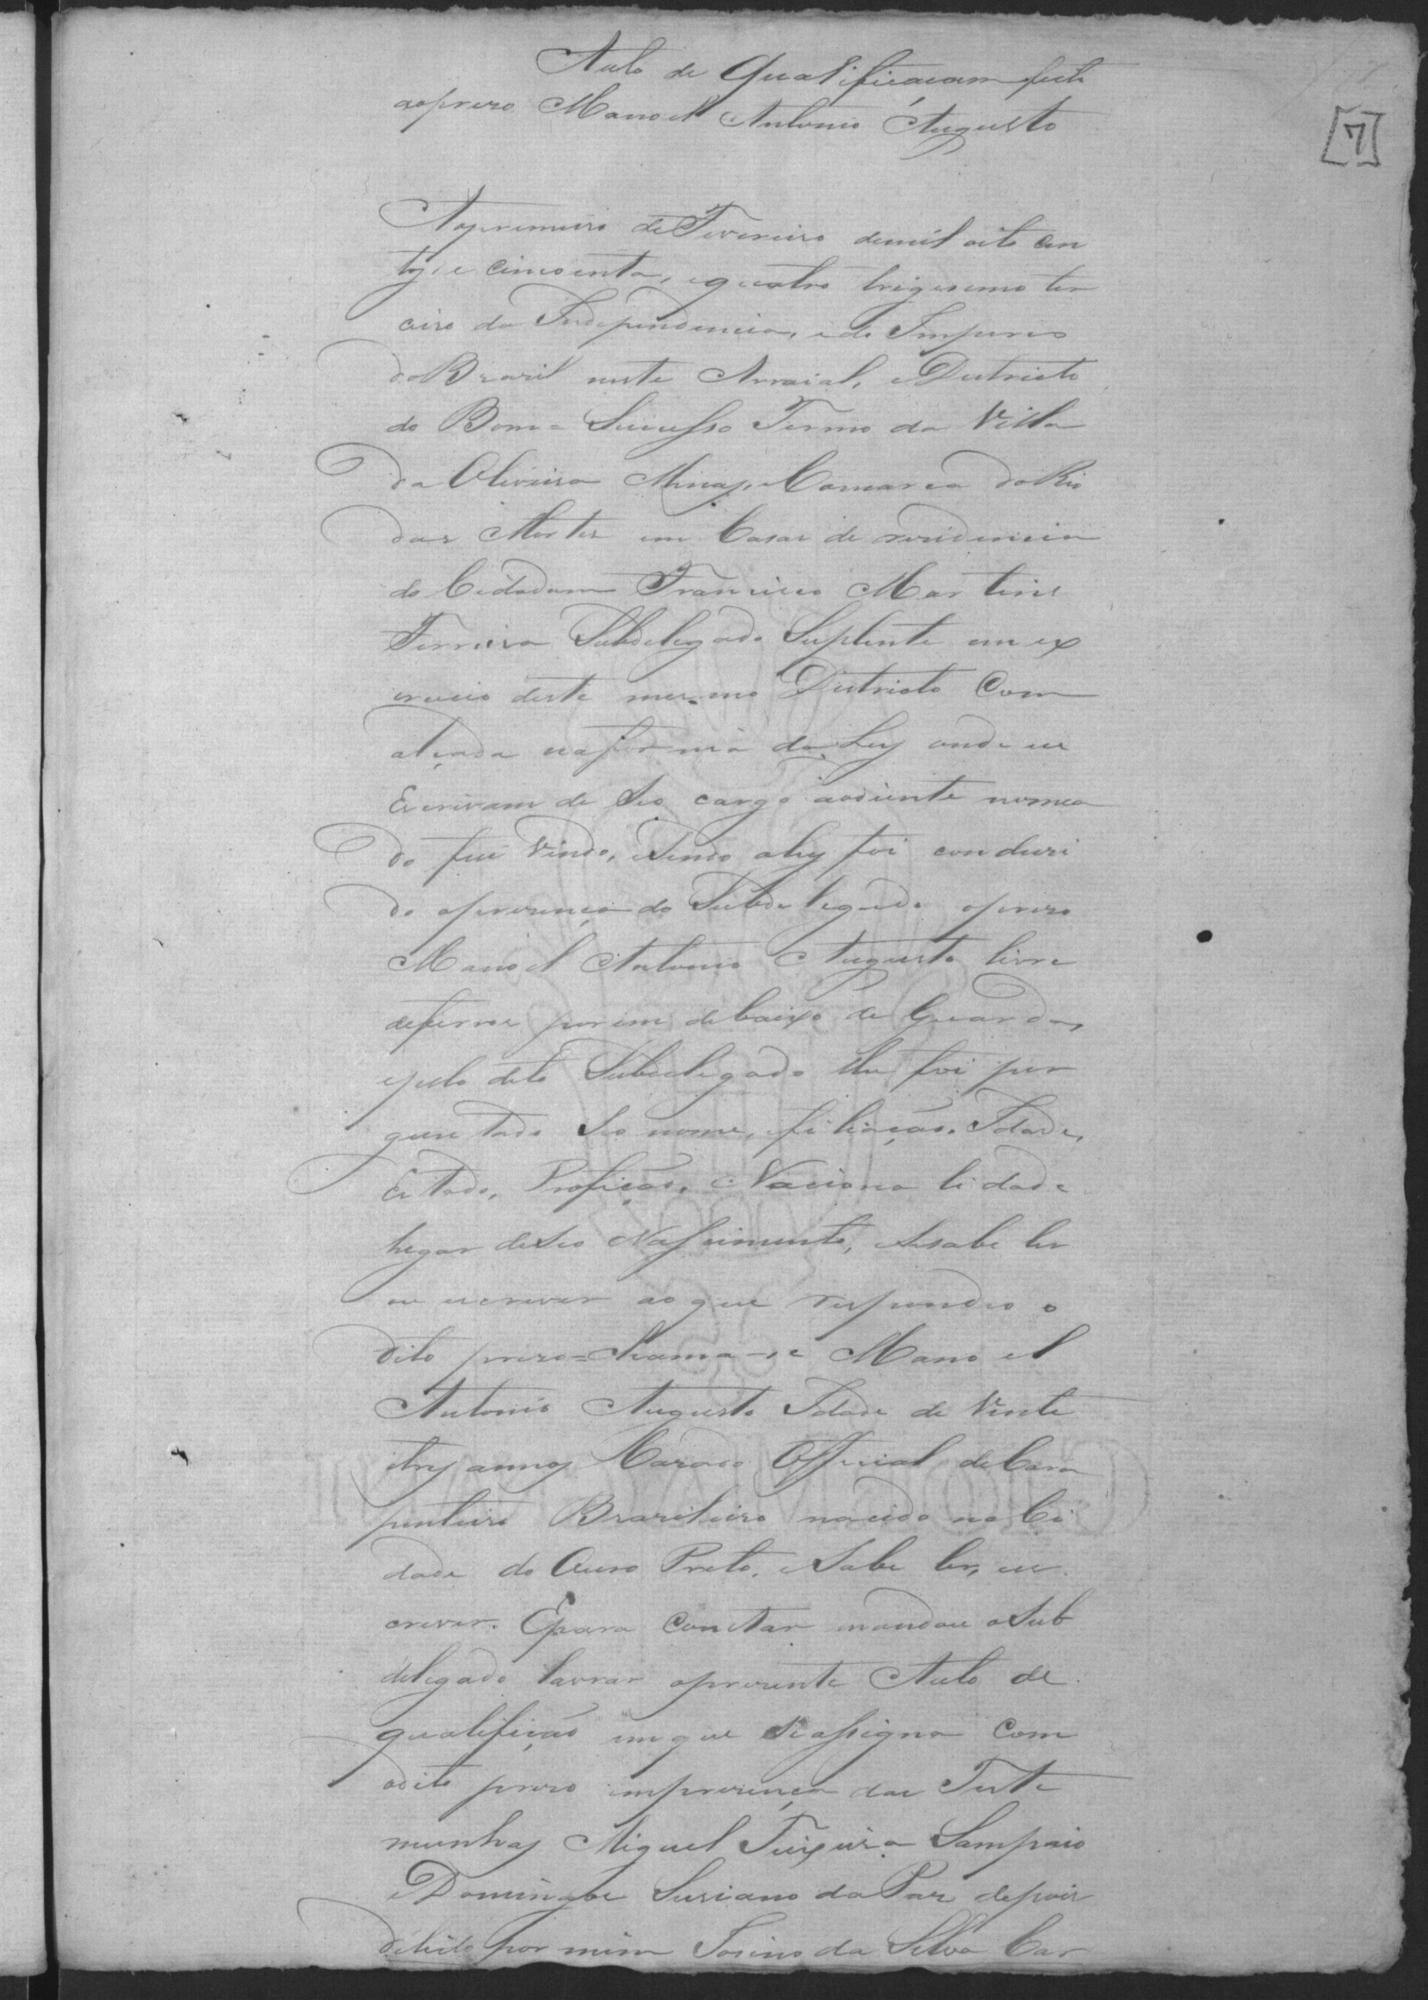 Auto de Qualificacam feito
ao preso Manoel Antonio Augusto
[7]
Ao premeiro de Fevereiro de mil oito cen
tos e cincoenta, e quatro trigesimo ter
ceiro da Independencia, e do Imperio
do Brazil neste Arraial, e Destricto
do Bom=Sucesso Termo da Villa
da Oliveira Minas, e Comarca do Rio
das Mortes em Casas de rezidencia
do Cidadam Francisco Martins
Ferreira Subdelegado Suplente em ex
ercicio deste mesmo Districto Com
alçada na forma da Ley onde eu
Escrivam de seo cargo aodiente nomea
do fui vindo, e Sendo ahy foi conduzi
do a prezença do Subdelegado o prezo
Manoel Antonio Augusto livre
de ferros porem debaixo de Guarda,
e pelo dito Subdelegado lhe foi per
guntado seo nome, filiação, Idade,
Estado, Profição, Nacionalidade
lugar de seo Nascimento, e se sabe ler
ou escrever ao que respondeo o
dito prezo=Chama-se Manoel
Antonio Augusto Idade de Vinte
e trez annos Cazado Official de Cara
pinteiro Brazileiro nacido na Ci
dade do Ouro Preto, e Sabe ler, es
crever. E para constar mandou o Sub
delegado lavrar o prezente Auto de
qualificação em que se assigna com
o dito prezo em prezença das Teste
munhas Miguel Teixeira Sampaio
e Domingos Suriano da Paz depois
de lido por mim Josino da Silva Car